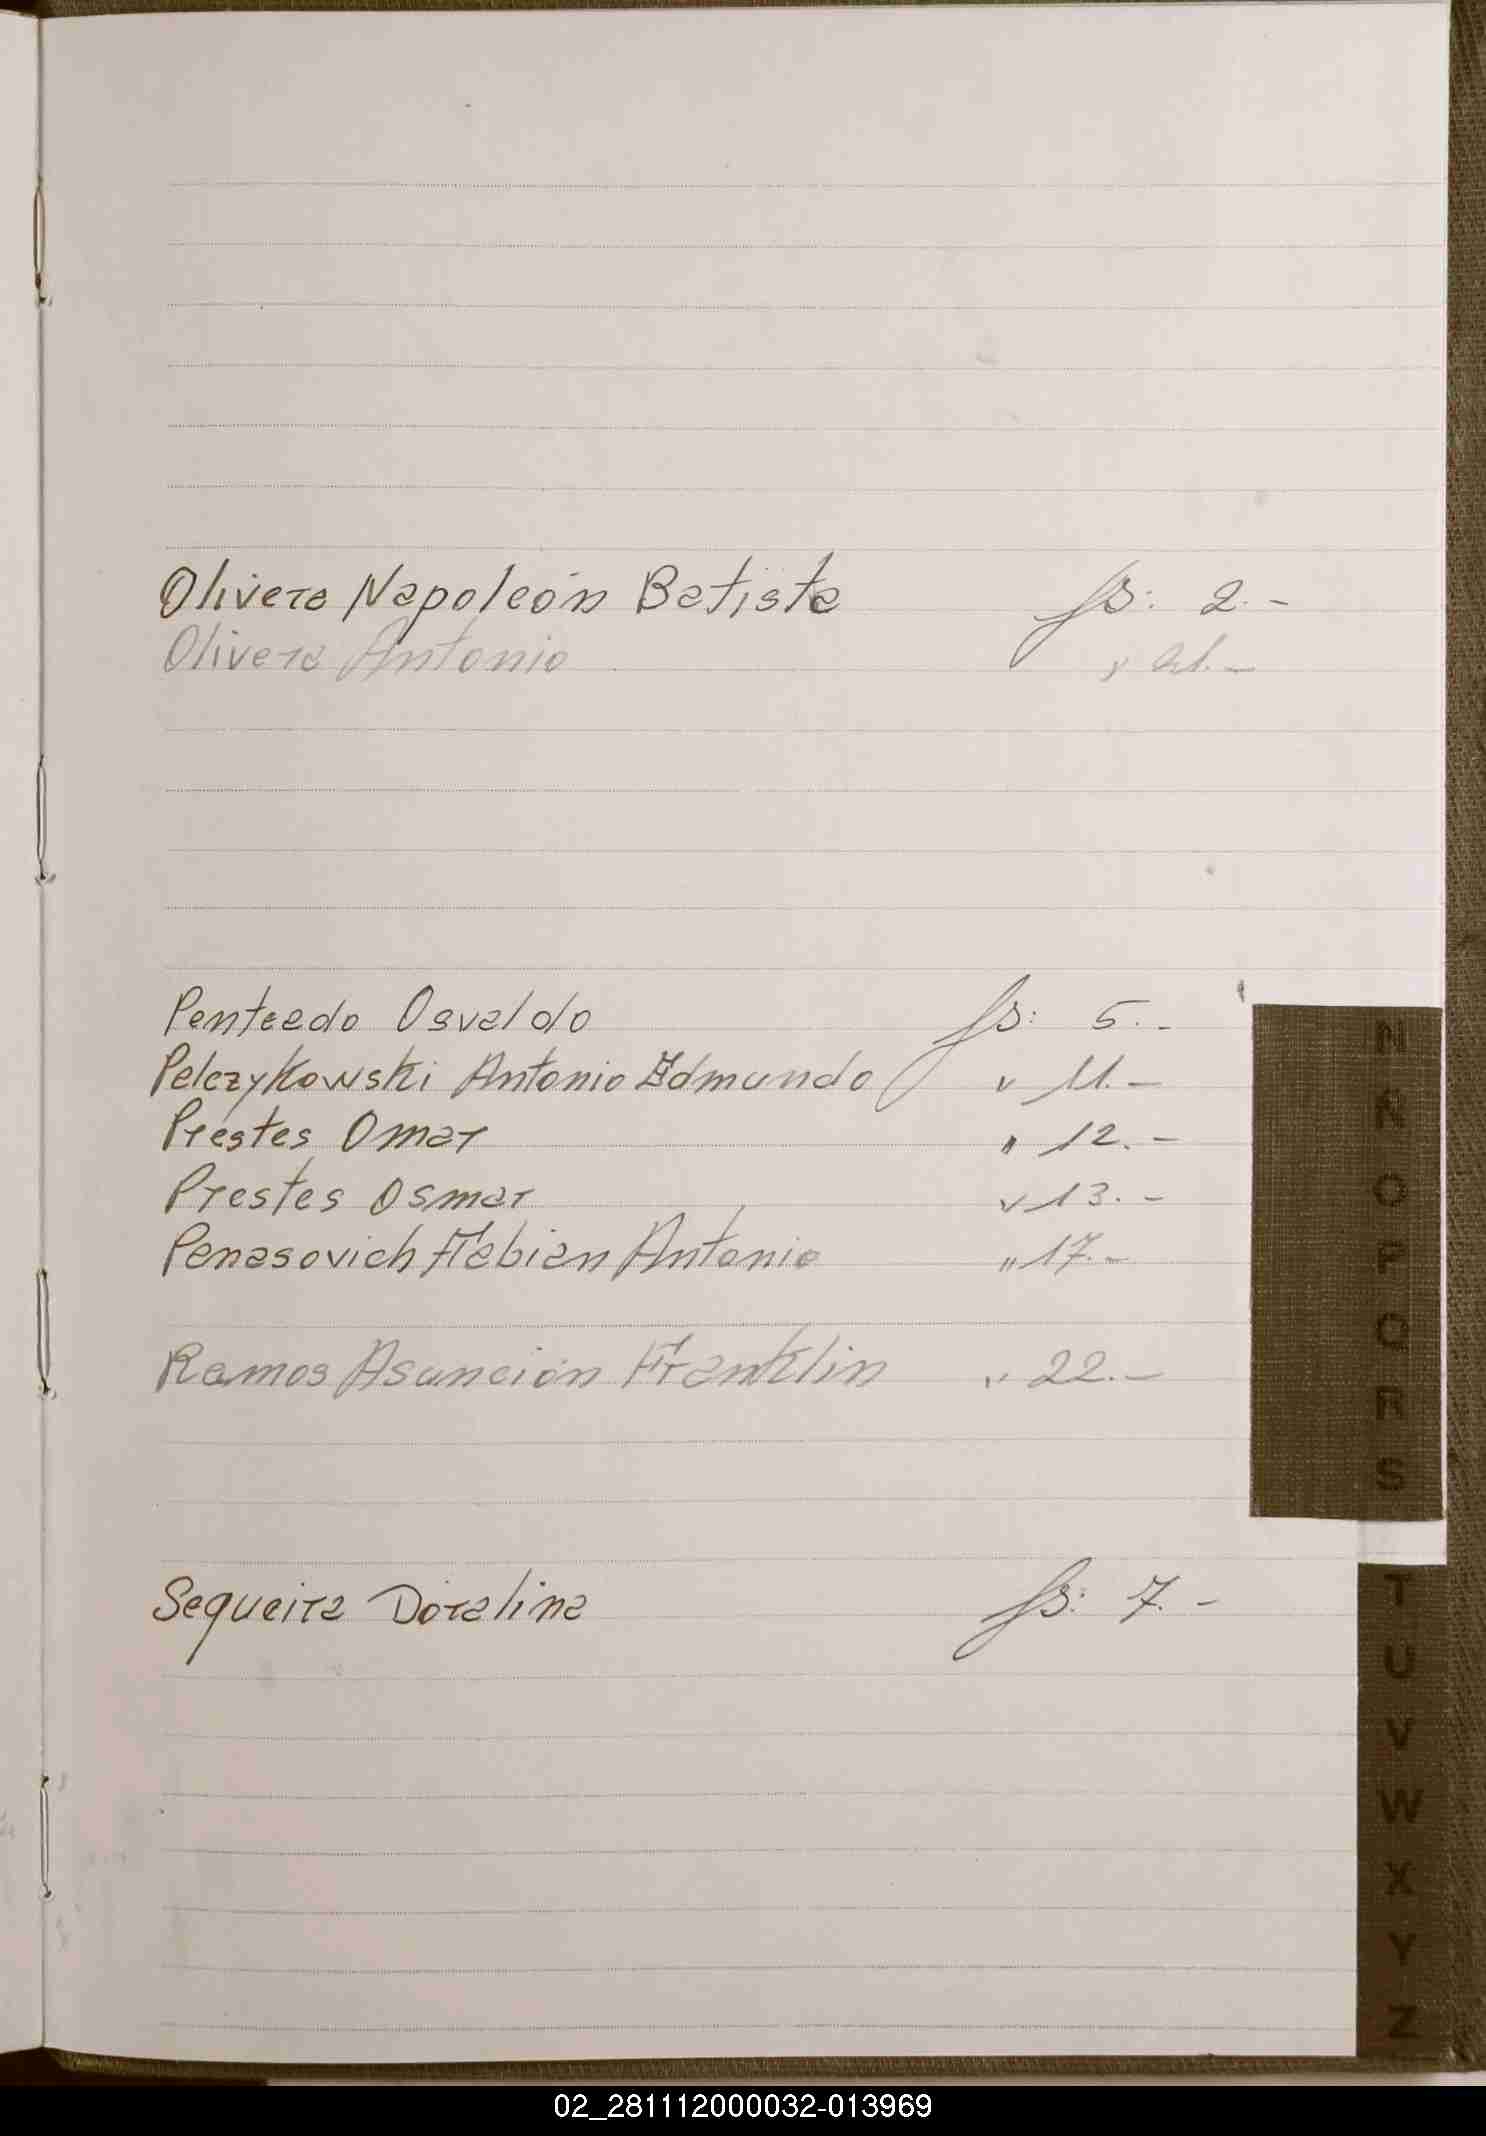 Olivera Napoleón Batista fs: 2.-
Olivera Antonio " 21.-
Penteado Osvaldo fs: 5.-
Pelczykowski Antonio Edmundo " 11.-
Prestes Omar " 12.-
Prestes Osmar " 13.-
Penasovich Fabian Antonio " 17.-
Ramos Asunción Franklin " 22.-
Sequeira Doralina fs: 7.-
N
Ñ
O
P
Q
R
S
T
U
V
W
X
Y
Z
02_281112000032-013969